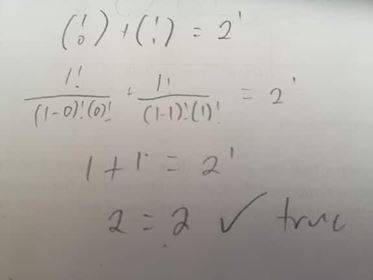 (1 0) + (1 1) = 2¹
1!/(1-0)!(0)! + 1!/(1-1)!(1)! = 2¹
1 + 1 = 2¹
2 = 2 ✓ true